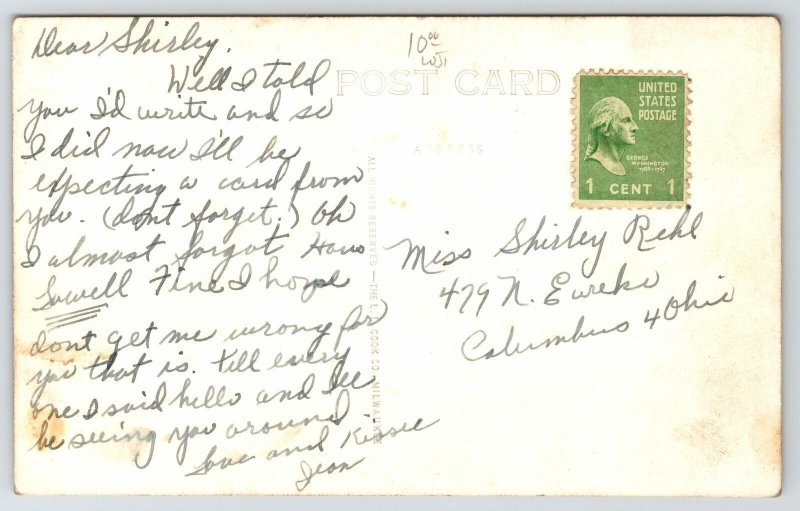 Dear Shirley.
Well I told
you I'd write and so
I did now I'll be
expecting a card from
you. (dont forget.) Oh
I almost forgot Hows
Sowell Fine I hope
dont get me wrong for
you that is. till every
one I said hello and I'll
be seeing you around
Love and Kissee
Jean
10.00
POST CARD
ADDRESS
ALL RIGHTS RESERVED — THE L. L. COOK CO., MILWAUKEE
UNITED
STATES
POSTAGE
GEORGE
WASHINGTON
1789-1797
1 CENT 1
Miss Shirley Rehl
479 N. Eureka
Columbus 4 Ohio